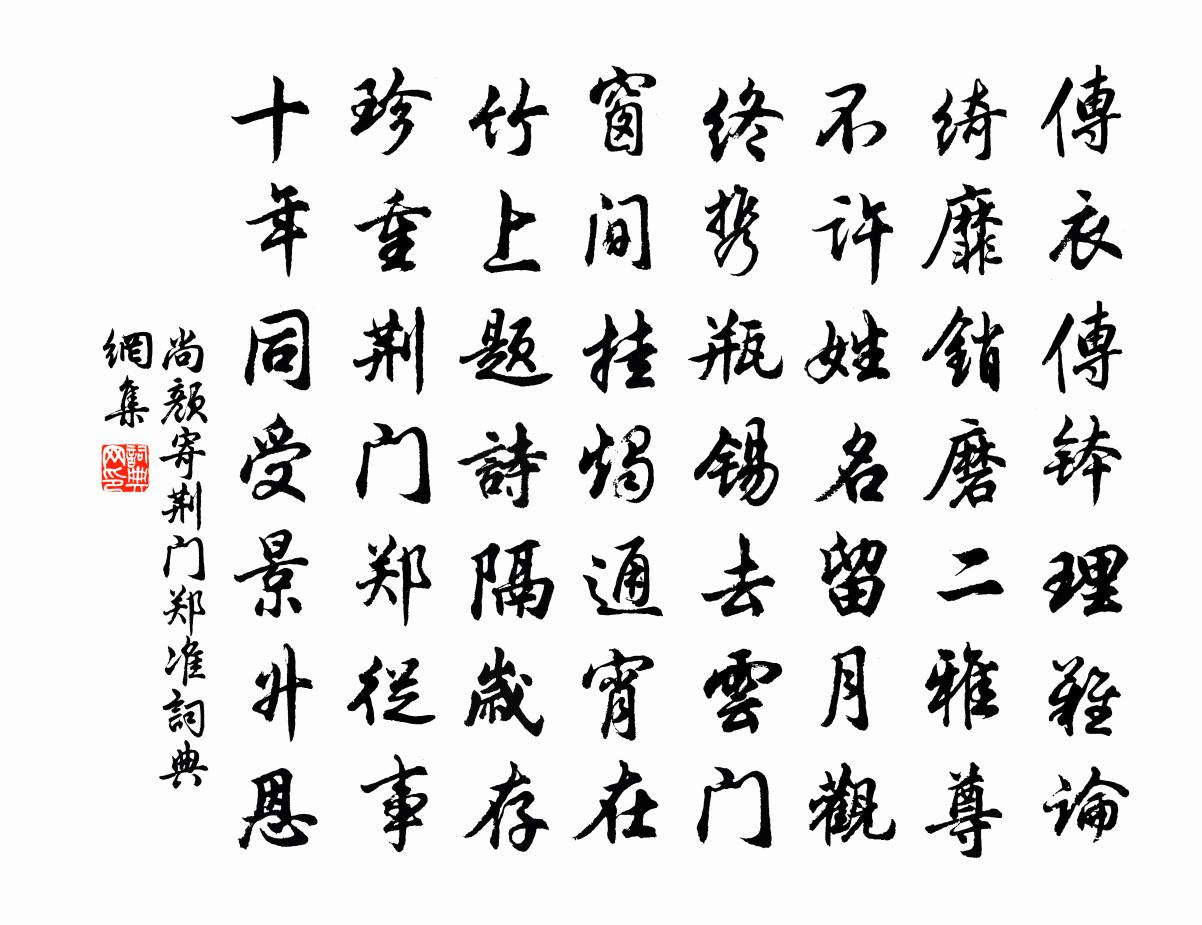 傳衣傳缽理難論
綺靡銷磨二雅尊
不許姓名留月觀
終携瓶錫去雲门
窗間挂燭通宵在
竹上題詩隔歲存
珍重荆门郑從事
十年同受景升恩
尚顏寄荆门郑准詞典
網集
詞典
网印